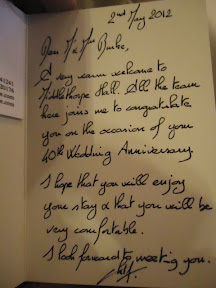 2nd May 2012
Dear Mr & Mrs Burke,
A very warm welcome to
Middlethorpe Hall. All the team
here joins me to congratulate
you on the occasion of your
40th Wedding Anniversary.
I hope that you will enjoy
your stay & that you will be
very comfortable.
I look forward to meeting you.